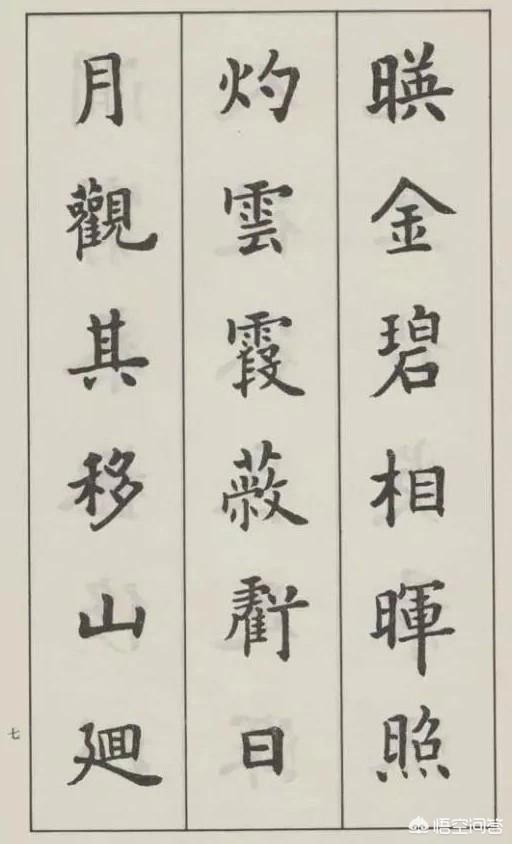 暎金碧相暉照
灼雲霞蔽虧日
月觀其移山廻
七
悟空问答